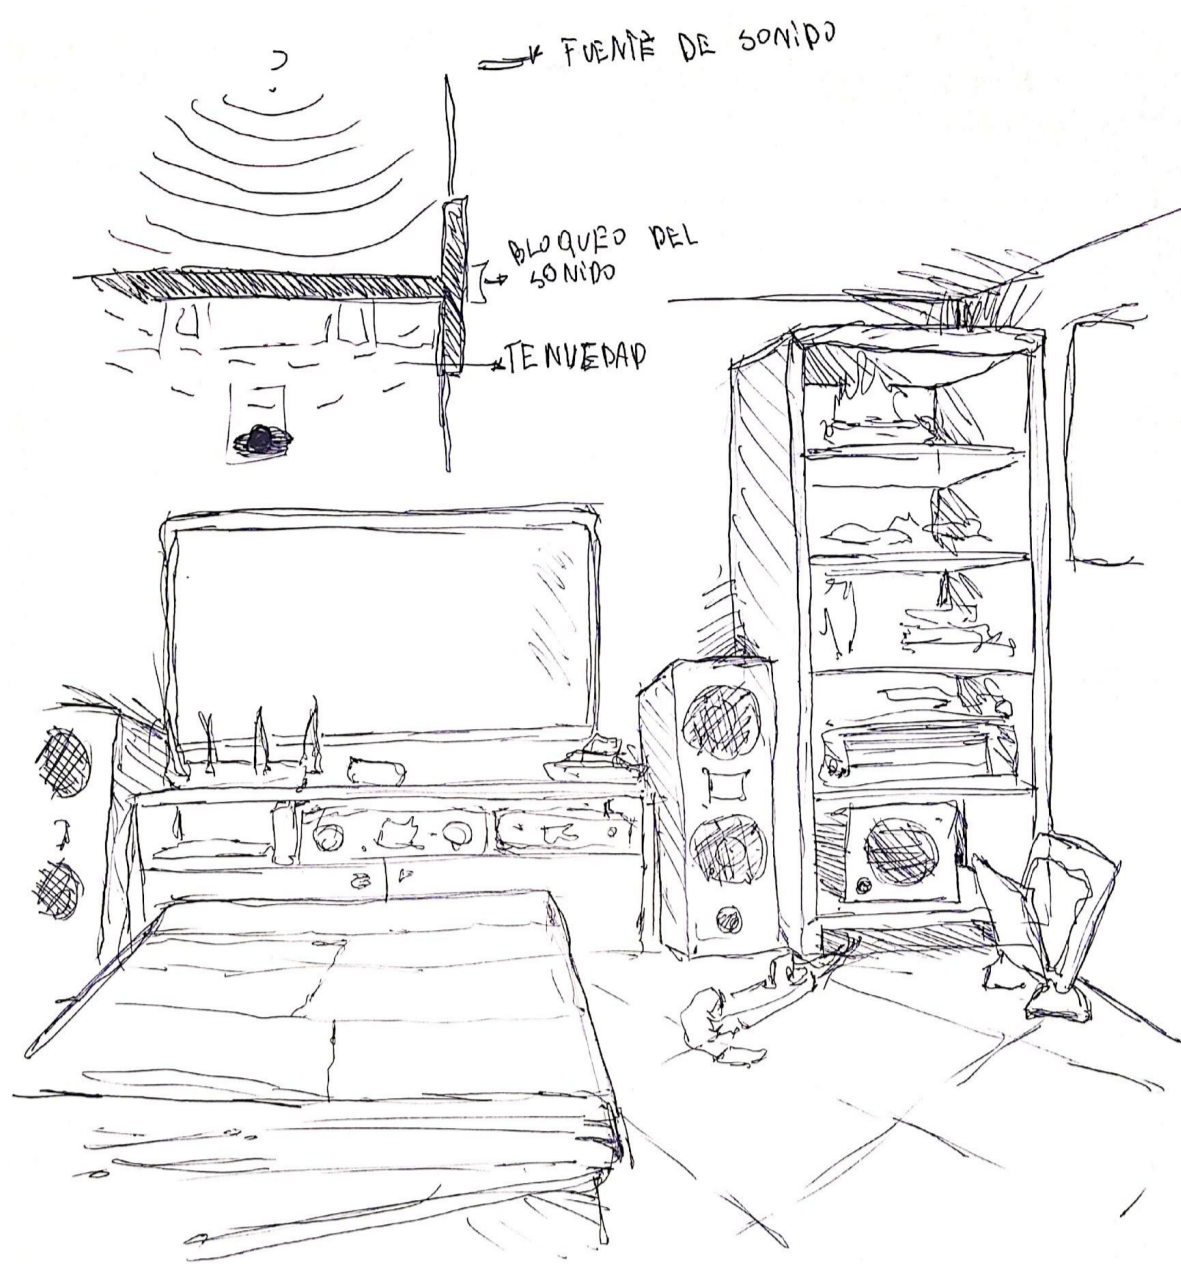 FUENTE DE SONIDO
BLOQUEO DEL
SONIDO
TENUEDAD